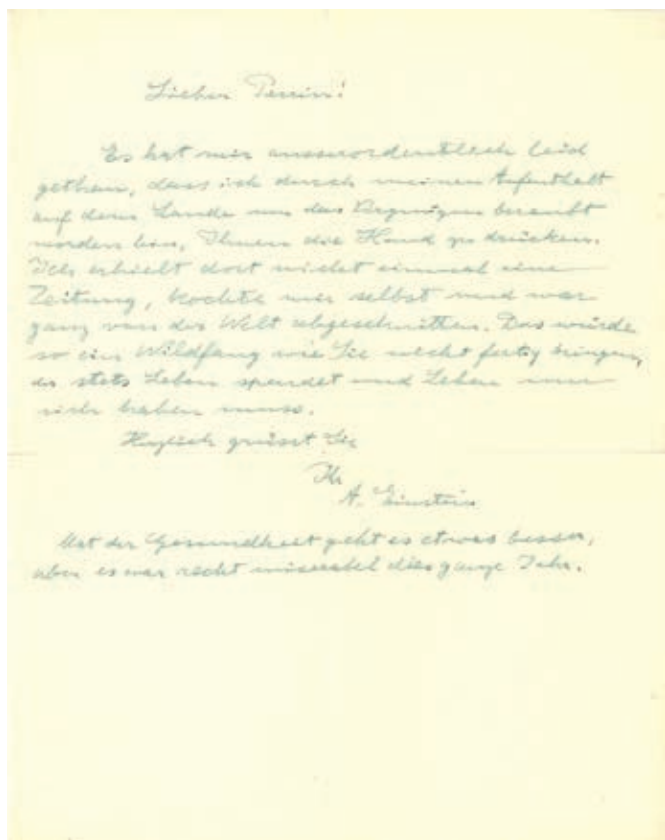 Lieber Perrin!
Es hat mir ausserordentlich leid
gethan, dass ich durch meinen Aufenthalt
auf dem Lande um das Vergnügen beraubt
worden bin, Ihnen die Hand zu drücken.
Ich erhielt dort nicht einmal eine
Zeitung, kochte mir selbst und war
ganz von der Welt abgeschnitten. Das würde
so ein Wildfang wie Sie nicht fertig bringen,
der stets Leben spendet und Leben um
sich haben muss.
Herzlich grüsst Sie
Ihr
A. Einstein
Mit der Gesundheit geht es etwas besser,
aber es war recht miserabel dies ganze Jahr.